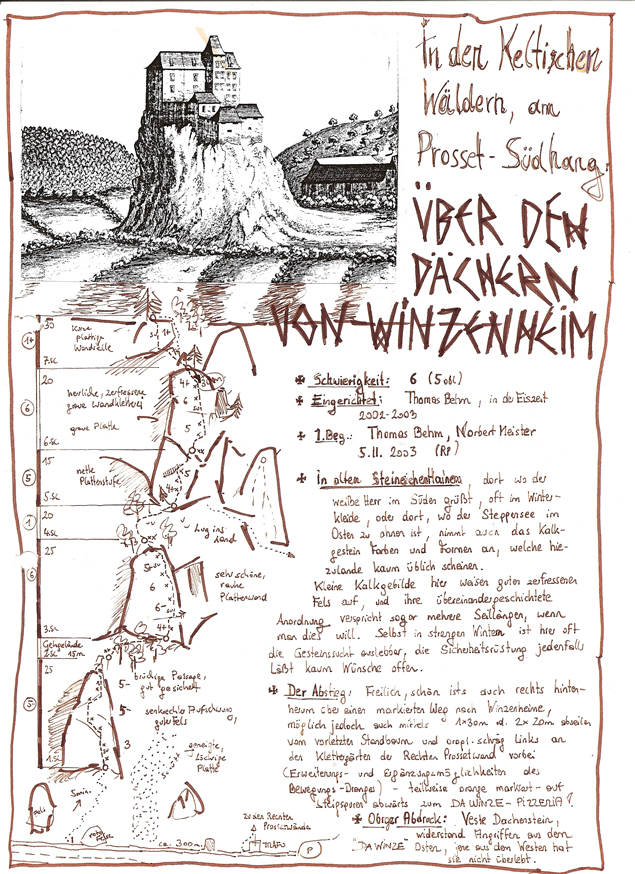 In den Keltischen
Wäldern, am
Prosset-Südhang:
ÜBER DEN
DÄCHERN
VON WINZENHEIM
Schwierigkeit: 6 (5 obl)
Eingerichtet: Thomas Behm, in der Eiszeit
2002-2003
1.Beg.: Thomas Behm, Norbert Meister
5.11.2003 (RP)
In altem Steineichenhainen, dort wo der
weiße Herr im Süden grüßt, oft im Winter-
kleide, oder dort, wo der Steppensee im
Osten zu ahnen ist, nimmt auch das Kalk-
gestein Farben und Formen an, welche hie-
zulande kaum üblich scheinen.
Kleine Kalkgebilde hier weisen guten zerfressenen
Fels auf, und ihre übereinandergeschichtete
Anordnung verspricht sogar mehrere Seillängen, wenn
man dies will. Selbst in strengen Wintern ist hier oft
die Gesteinssucht auslebbar, die Sicherheitsrüstung jedenfalls
läßt kaum Wünsche offen.
Der Abstieg: Freilich, schön ists auch rechts hinten
herum über einen markierten Weg nach Winzenheime,
möglich jedoch auch mittels 1x30m od. 2x 20m abseilen
vom vorletzten Standbaum und orogr. schräg links an
den Klettergärten der Rechten Prossetwand vorbei
(Erweiterungs- und Ergänzungsmöglichkeiten des
Bewegungs-Dranges) - teilweise orange markiert - auf
Steigspuren abwärts zum DA WINZE-PIZZERIA!
Obiger Abdruck: Veste Dachenstein,
widerstand Angriffen aus dem
"DA WINZE" Osten, jene aus dem Westen hat
sie nicht überlebt.
30
1+
7.SC
kurze
plattige
Wandstelle
20
6
6.SC
herrliche, zerfressene
graue Wandkletterei
graue Platte
4+
30m
6
5
15
5
5.SC
nette
Plattenstufe
4+
20
1
4.SC
Zug ins
Land
25
6
3.SC
5-
6
6-
4+
sehr schöne,
rauhe
Plattenwand
Gehgelände
2.SC 15m
25
5
1.SC
5-
5-
3
brüchige Passage,
gut gesichert
senkrechter Aufschwung,
guter Fels
geneigte,
leichte
Platte
5min.
ca. 300m
zu den Rechten
Prossetwänden
TRAFO
P